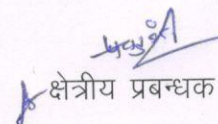 क्षेत्रीय प्रबन्धक